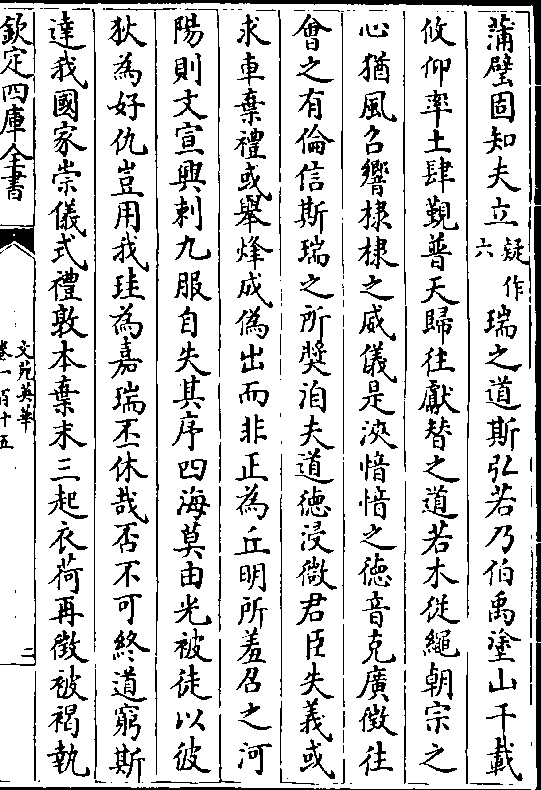 蒲璧固知夫立疑作六瑞之道斯弘若乃伯禹塗山千載
攸仰率土肆覲普天歸往獻替之道若木從繩朝宗之
心猶風召響棣棣之威儀是浹愔愔之德音克廣徵往
會之有倫信斯瑞之所奬洎夫道德浸微君臣失義或
求車棄禮或舉烽成偽出而非正為丘明所羞召之河
陽則文宣興刺九服自失其序四海莫由光被徒以彼
狄為好仇豈用我珪為嘉瑞丕休哉否不可終道窮斯
達我國家崇儀式禮敦本棄末三起衣荷再徵被褐執
欽定四庫全書
文苑英華
卷一百十五
二